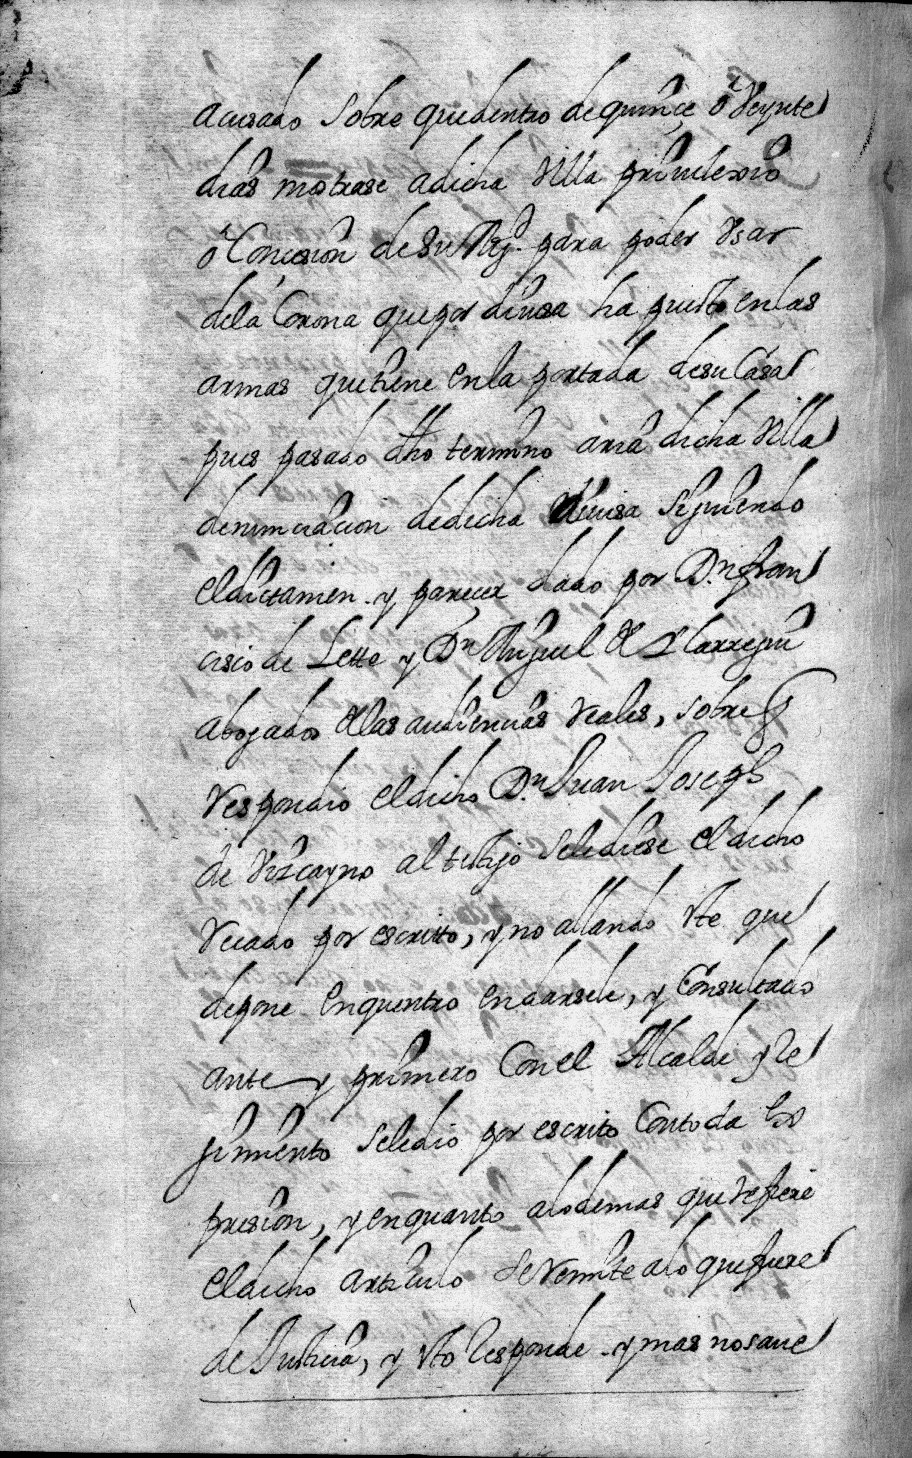 acusado sobre quedentro dequince ô Veynte
dias mostrase adicha Villa priuilexio
ô Concesion de Su Mg.d para poder Vsar
dela Corona quepor diuisa ha puesto enlas
armas quetiene enla portada desu Casa
pues pasado dho termino aria dicha Villa
denunciacion dedicha diuisa siguiendo
eldictamen y parecer dado por D.n fran
cisco de Letto y D.n Miguel de Ylarregui
abogados delas audiencias reales, sobre q
respondio eldicho D.n Juan Joseph
de Vizcayno altestigo selediese eldicho
recado por escritto, y no allando este que
depone enquentro endarsele, y Consultado
ante y primero Con el Alcalde y Re
jimiento seledio por escrito Contoda ex
presion, y enquanto alodemas que refiere
eldicho articulo se remite alo quefuere
de Justicia, y esto responde y mas nosaue